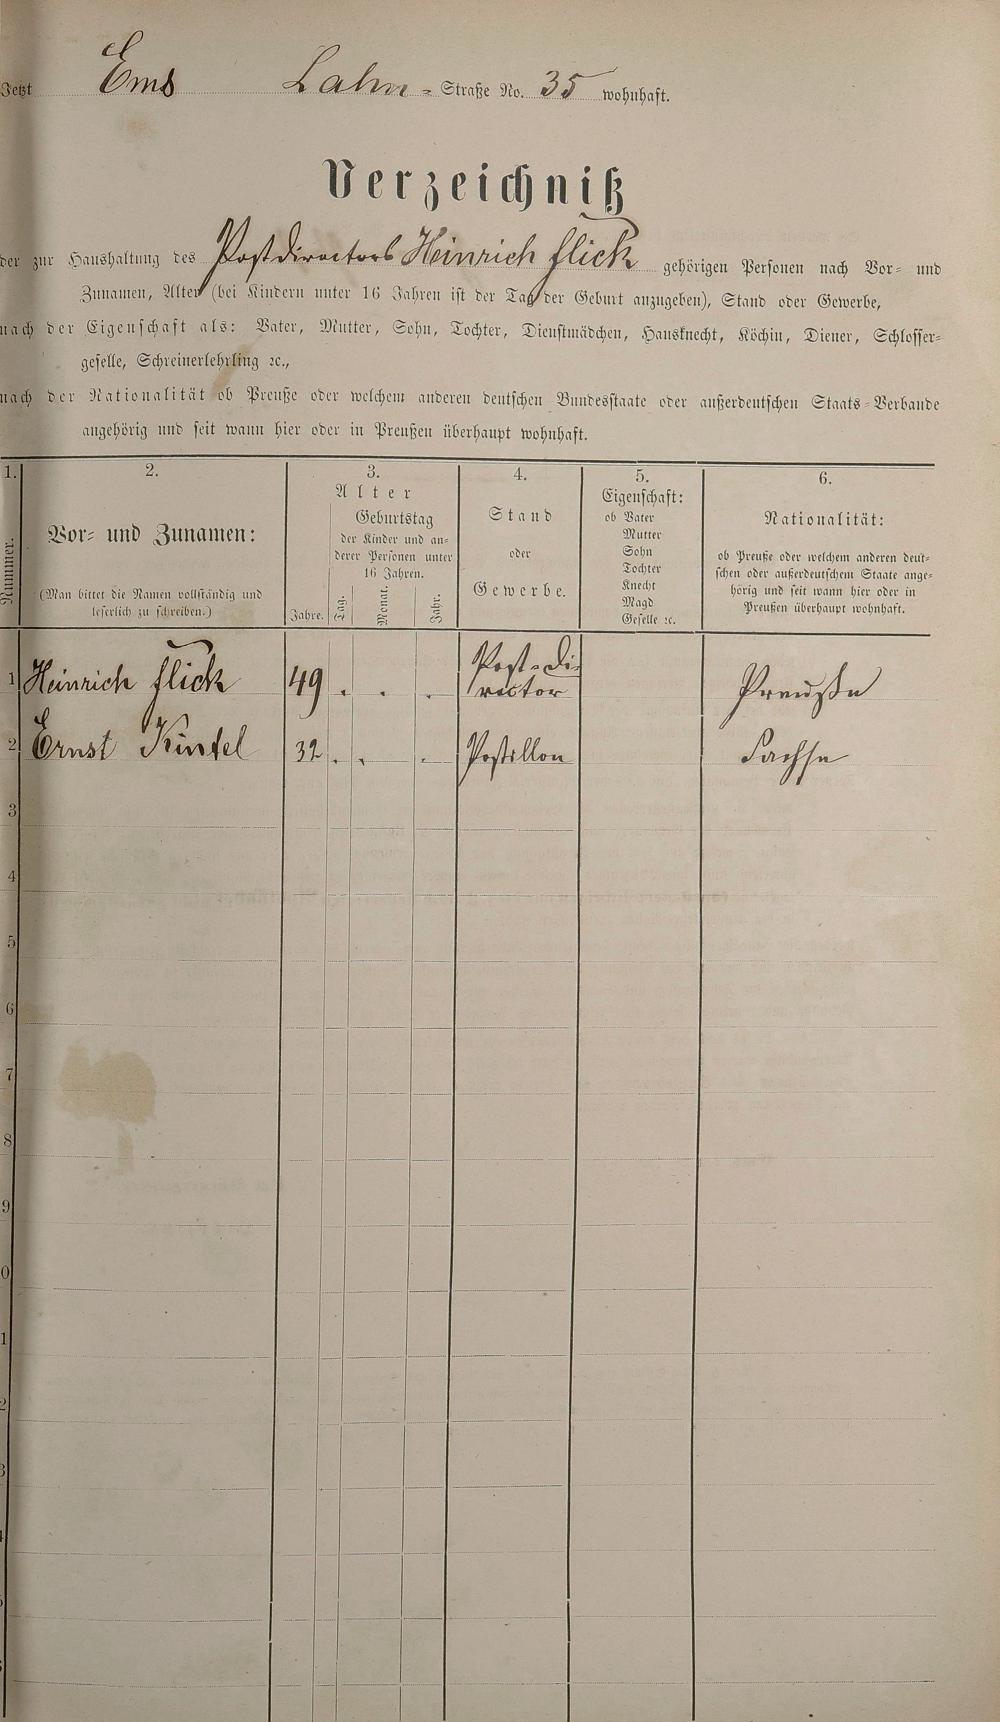 Jetzt Ems Lahn - Straße No. 35 wohnhaft.
Verzeichniß
der zur Haushaltung des Postdirectors Heinrich Flick gehörigen Personen nach Vor- und
Zunamen, Alter (bei Kindern unter 16 Jahren ist der Tag der Geburt anzugeben), Stand oder Gewerbe,
nach der Eigenschaft als: Vater, Mutter, Sohn, Tochter, Dienstmädchen, Hausknecht, Köchin, Diener, Schlosser-
geselle, Schreinerlehrling ꝛc.,
nach der Nationalität ob Preuße oder welchem anderen deutschen Bundesstaate oder außerdeutschen Staats-Verbande
angehörig und seit wann hier oder in Preußen überhaupt wohnhaft.
1. 2. 3. 4. 5. 6.
Nummer.
Vor- und Zunamen:
(Man bittet die Namen vollständig und
leserlich zu schreiben.)
Alter
Jahre.
Geburtstag
der Kinder und an-
derer Personen unter
16 Jahren.
Tag. Monat. Jahr.
Stand
oder
Gewerbe.
Eigenschaft:
ob Vater
Mutter
Sohn
Tochter
Knecht
Magd
Geselle ꝛc.
Nationalität:
ob Preuße oder welchem anderen deut-
schen oder außerdeutschem Staate ange-
hörig und seit wann hier oder in
Preußen überhaupt wohnhaft.
1 Heinrich Flick 49 . . . Post-Di-
rector Preuße
2 Ernst Kintel 32 . . . Postillon Sachse
3
4
5
6
7
8
9
0
1
2
3